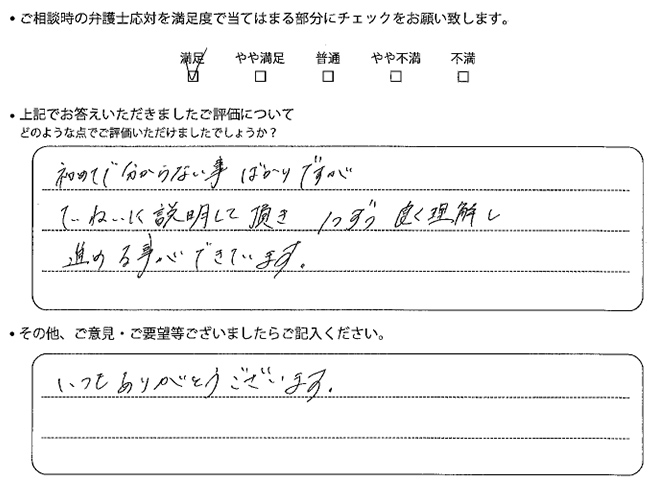 • ご相談時の弁護士応対を満足度で当てはまる部分にチェックをお願い致します。
満足 やや満足 普通 やや不満 不満
☑ □ □ □ □
• 上記でお答えいただきましたご評価について
どのような点でご評価いただけましたでしょうか?
初めてで分からない事 ばかりですが
ていねいに説明して頂き 1つずつ 良く理解し
進める事ができています。
• その他、ご意見・ご要望等ございましたらご記入ください。
いつもありがとうございます。